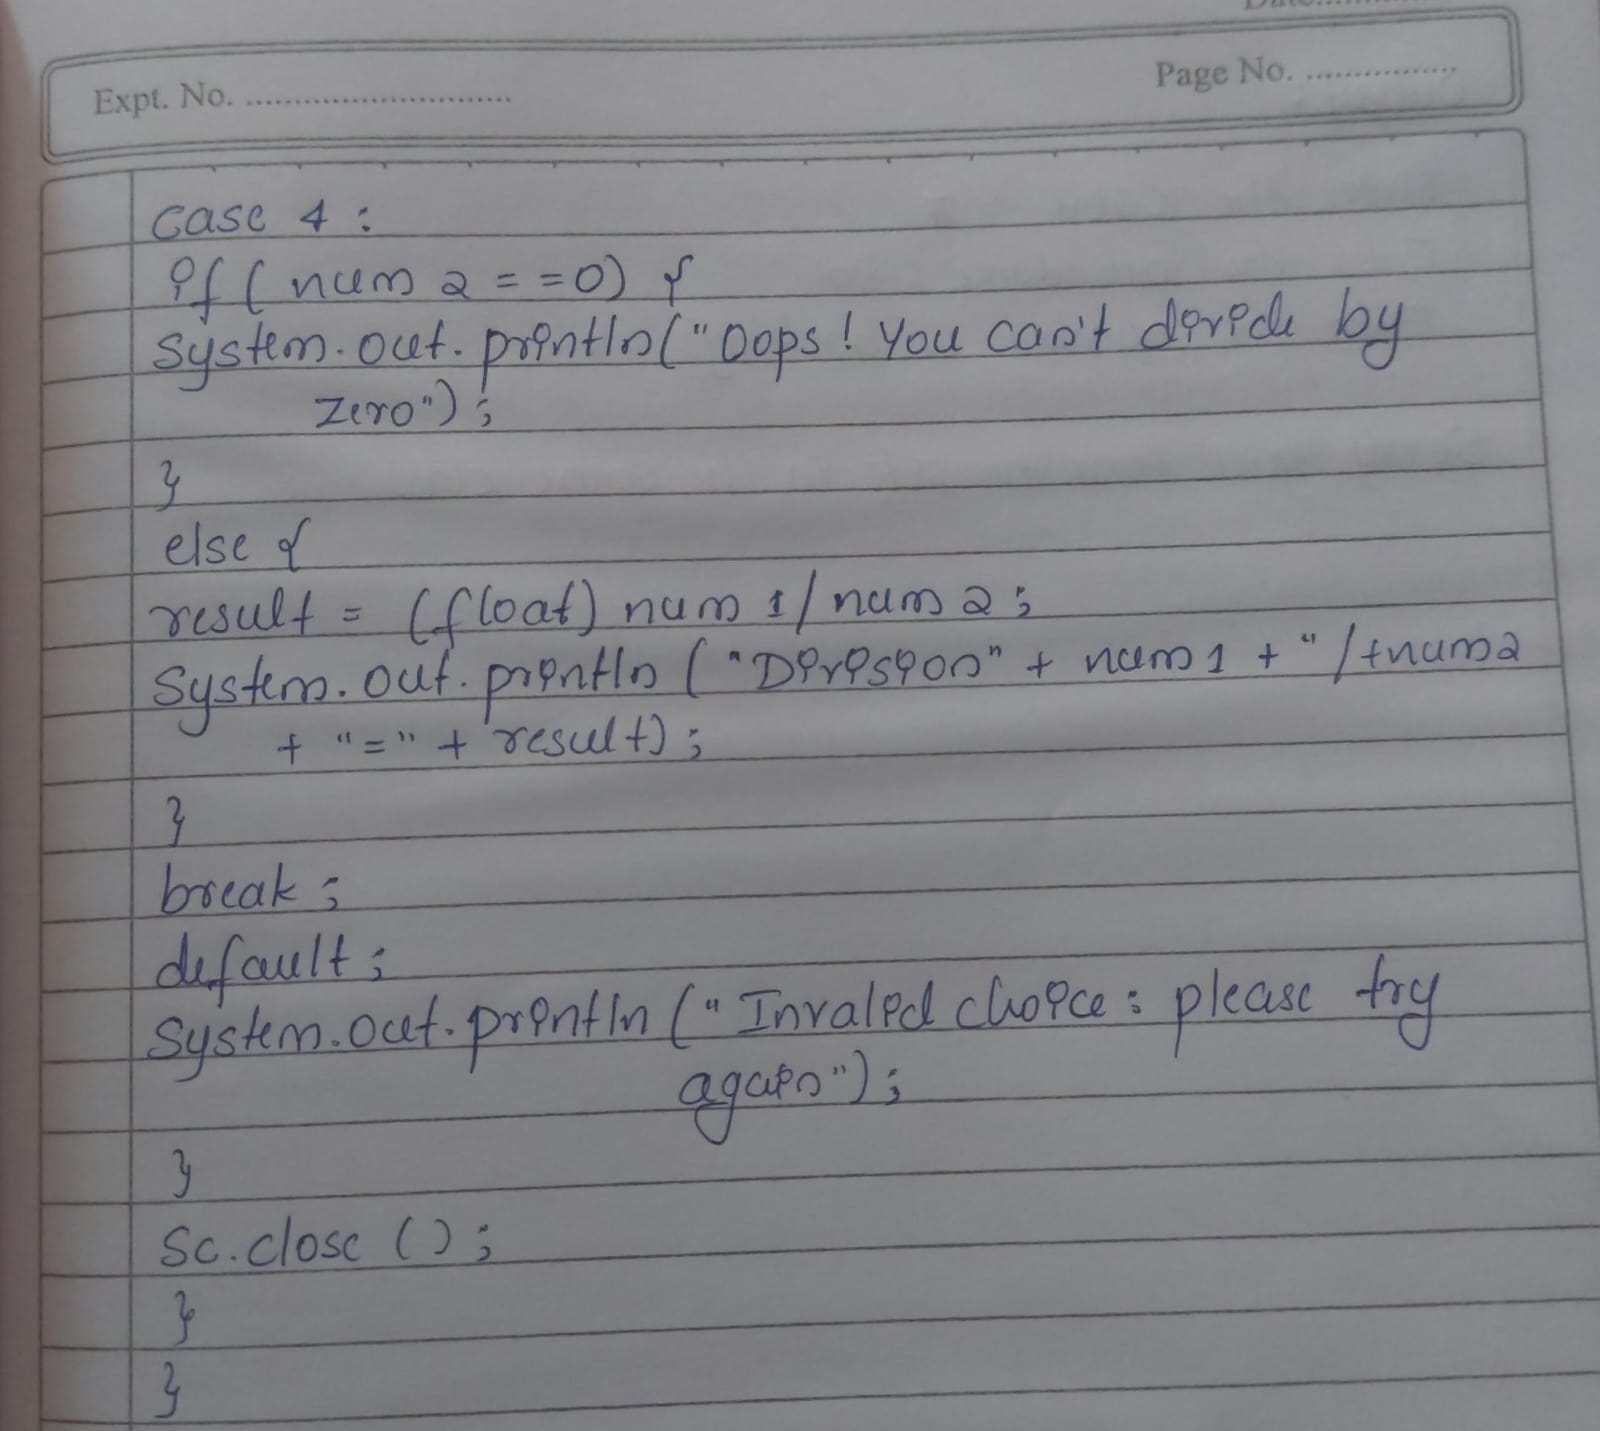 Expt. No. ..............................
Page No. ................
case 4 :
if ( num 2 = = 0) {
System.out.println("Oops! You can't divide by
zero");
}
else {
result = (float) num 1 / num 2 ;
System.out.println ( "Division" + num 1 + " / +num2
+ "=" + result) ;
}
break ;
default ;
System.out.println (" Invalid choice : please try
again") ;
}
Sc.close () ;
}
}